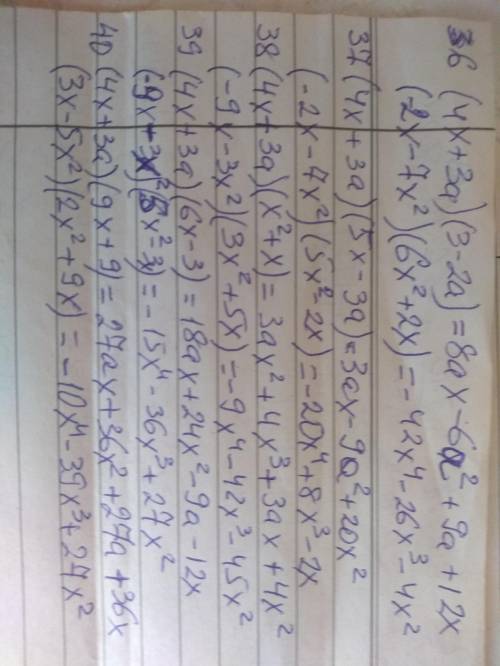 36 (4x+3a)(3-2a)=8ax-6a²+9a+12x
(-2x-7x²)(6x²+2x)=-42x⁴-26x³-4x²
37 (4x+3a)(5x-3a)=3ax-9a²+20x²
(-2x-4x²)(5x²-2x)=-20x⁴+8x³-2x
38 (4x+3a)(x²+x)=3ax²+4x³+3ax+4x²
(-9x-3x²)(3x²+5x)=-9x⁴-42x³-45x²
39 (4x+3a)(6x-3)=18ax+24x²-9a-12x
=-15x⁴-36x³+27x²
40 (4x+3a)(9x+9)=27ax+36x²+27a+36x
(3x-5x²)(2x²+9x)=-10x⁴-39x³+27x²